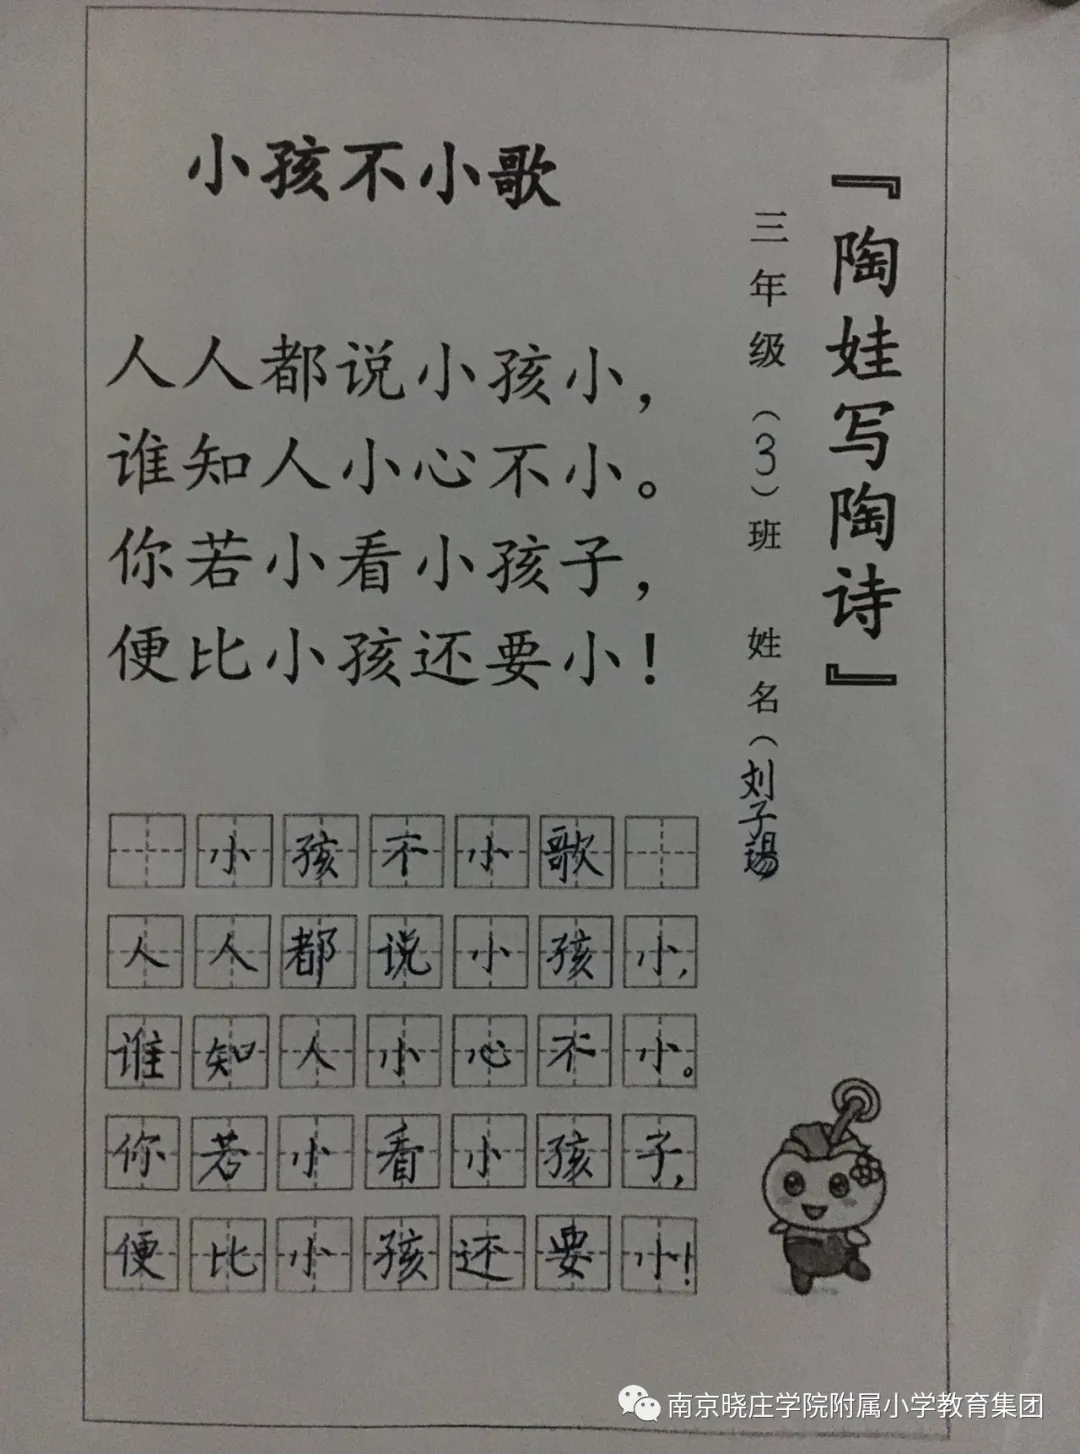 『陶娃写陶诗』
三年级（3）班 姓名（刘子
小孩不小歌
人人都说小孩小，
谁知人小心不小。
你若小看小孩子，
便比小孩还要小！
小孩不小歌
人人都说小孩小，
谁知人小心不小。
你若小看小孩子，
便比小孩还要小！
南京晓庄学院附属小学教育集团